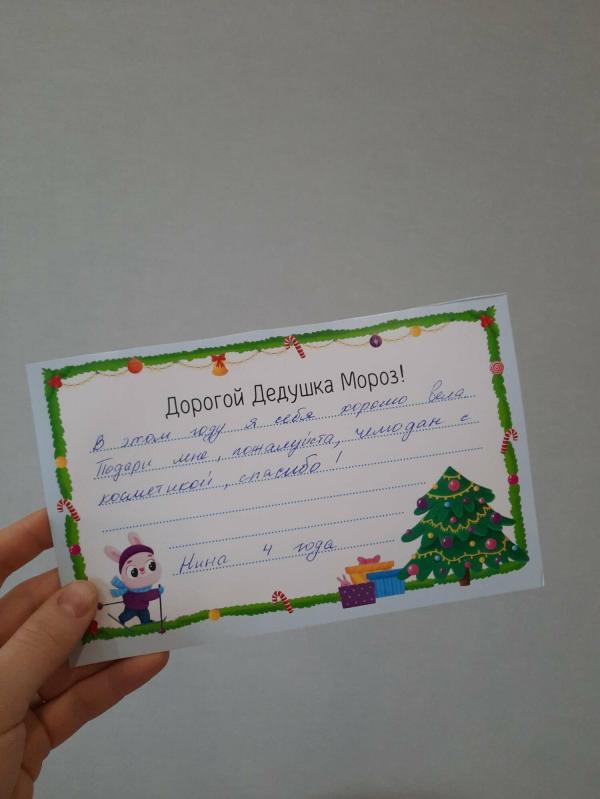 Дорогой Дедушка Мороз!
В этом году я себя хорошо вела
Подари мне, пожалуйста, чемодан с
косметикой, спасибо!
Нина 4 года